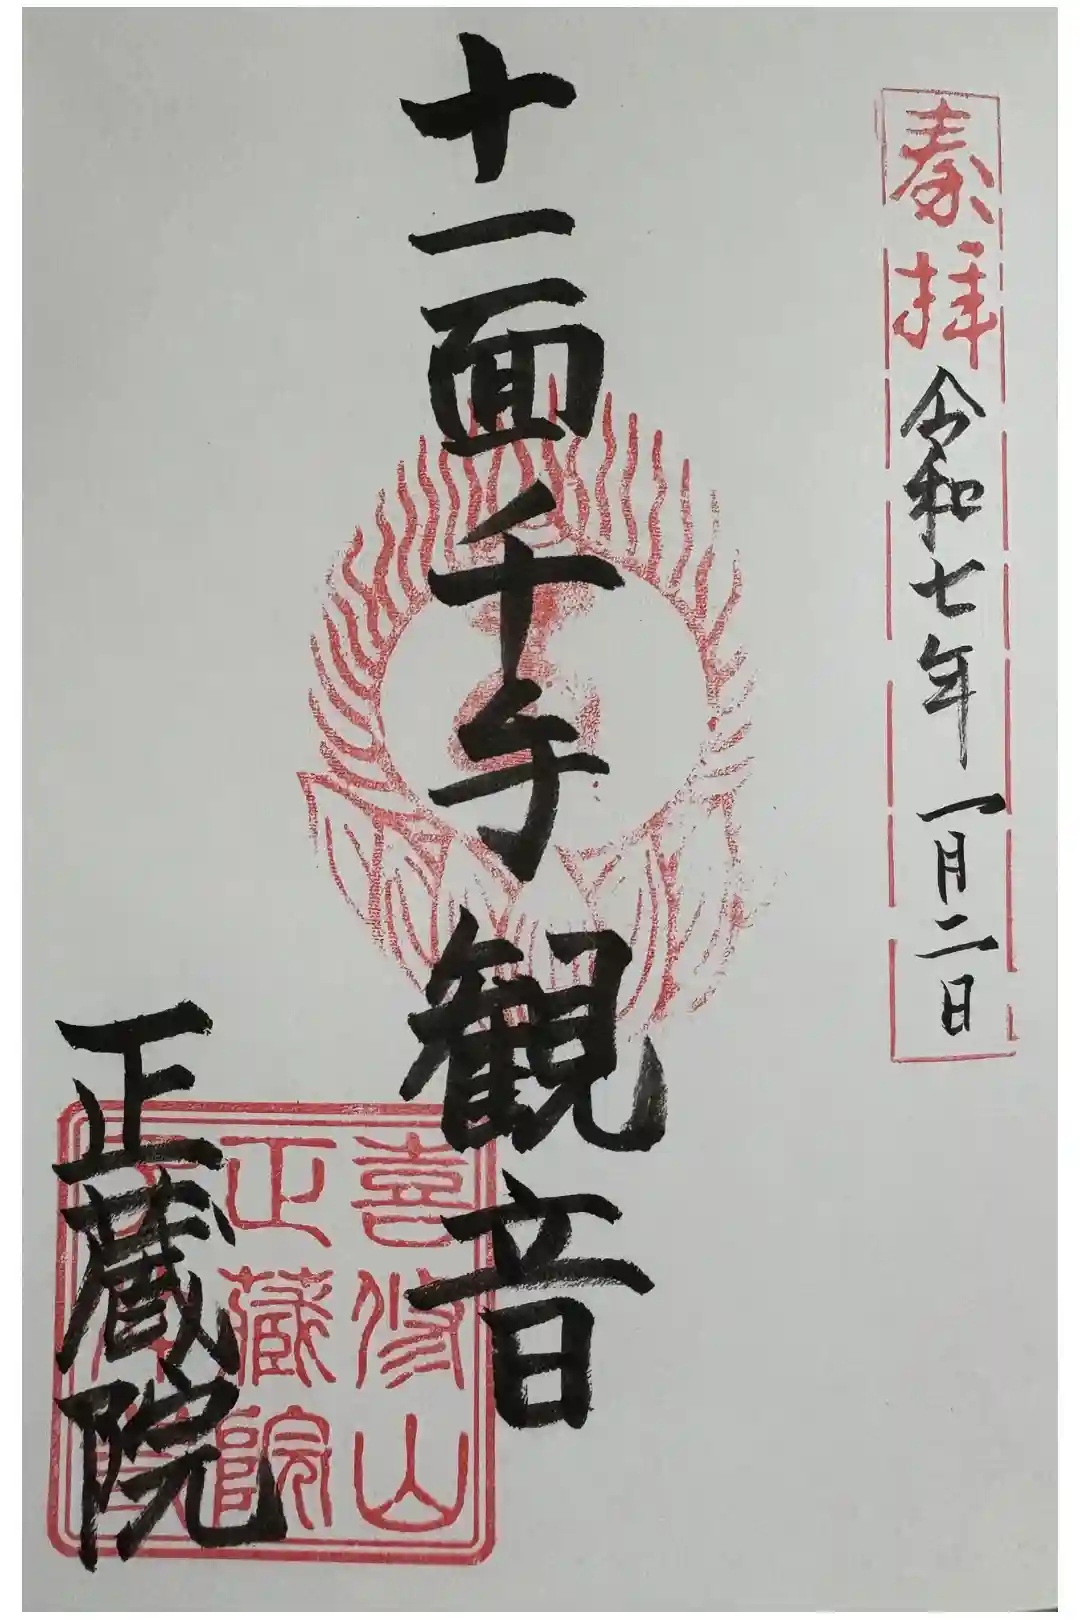 奉拝
令和七年一月二日
十一面千手観音
喜修山
正蔵院
正蔵院